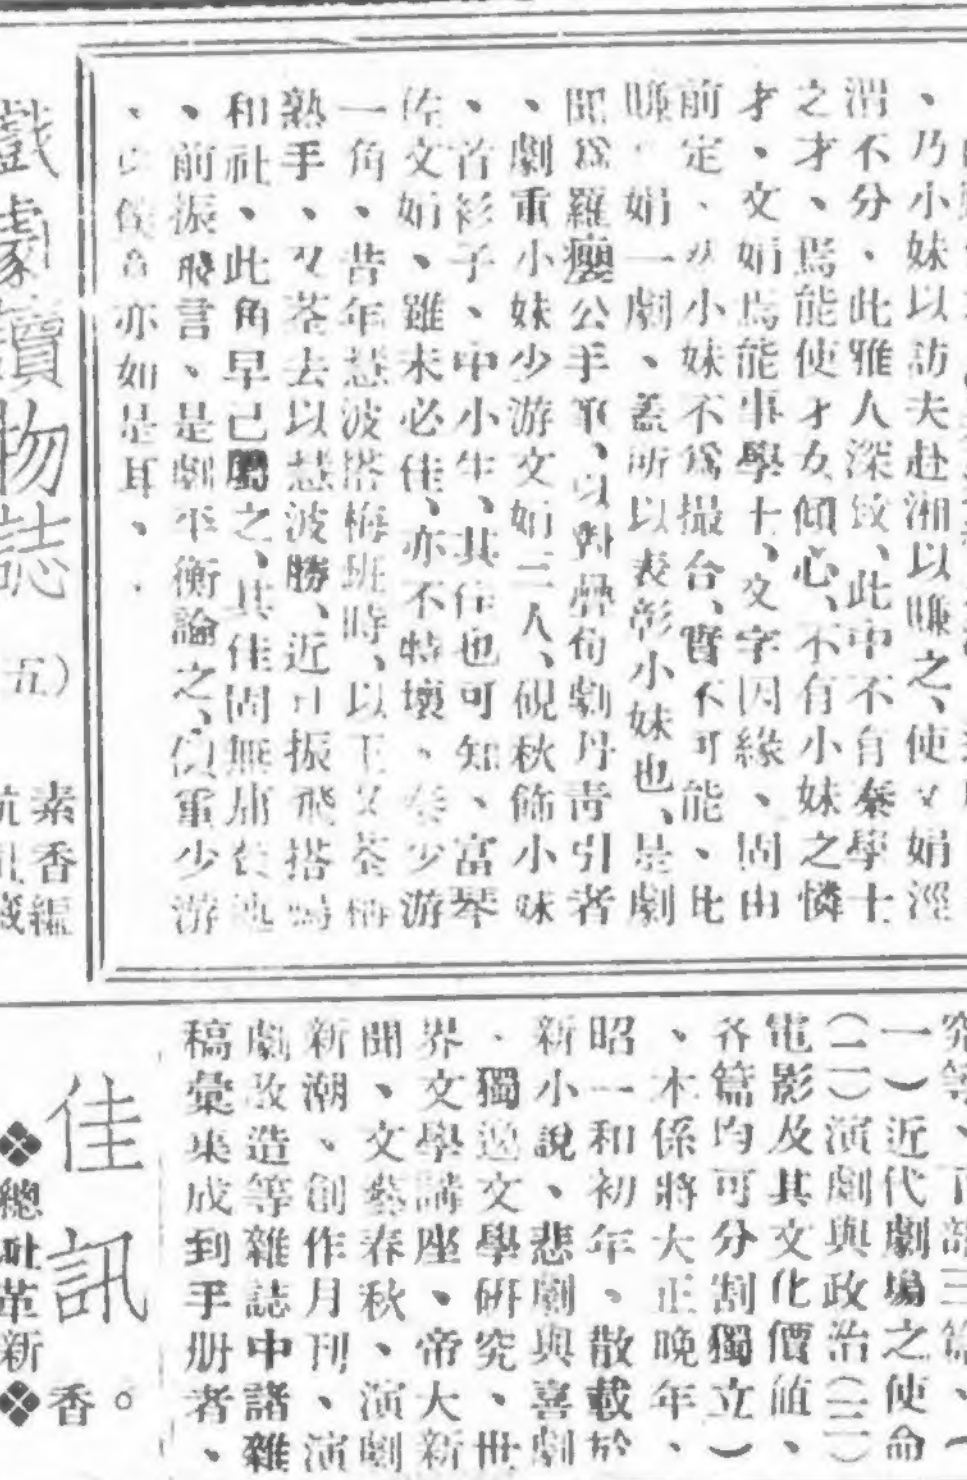 、乃小妹以訪夫赴湘以賺之、使文娟涇
渭不分、此雅人深致、此中不有秦學士
之才、焉能使才女傾心、不有小妹之憐
才、文娟焉能事學士、文字因緣、固由
前定、  小妹不爲撮合、實不可能、比
賺 娟一劇、蓋所以表彰小妹也、是劇
聞爲羅癭公手筆、以對疊句劇丹靑引者
、劇重小妹少游文娟三人、硯秋飾小妹
、首衫子、中小生、其佳也可知、富琴
佐文娟、雖未必佳、亦不特壞、秦少游
一角、昔年慧波搭梅班時、以王又荃
熟手、又荃去以慧波勝、近 振飛搭鳴
和社、此角早已屬之、其佳固無庸
、前振飛言、是劇平衡論之、 重少游
、 亦如是耳、
戲劇讀物誌
五）
素香編
藏
究等、
一）近代劇場之使命
（二）演劇與政治（三）
電影及其文化價値、
各篇均可分割獨立）
、本係將大正晚年、
昭一和初年、散載於
新小說、悲劇與喜劇
、獨逸文學研究、世
界文學講座、帝大新
聞、文藝春秋、演劇
新潮、創作月刊、演
劇改造等雜誌中諸雜
稿彙集成到手册者、
佳訊。
香
❖總社革新❖